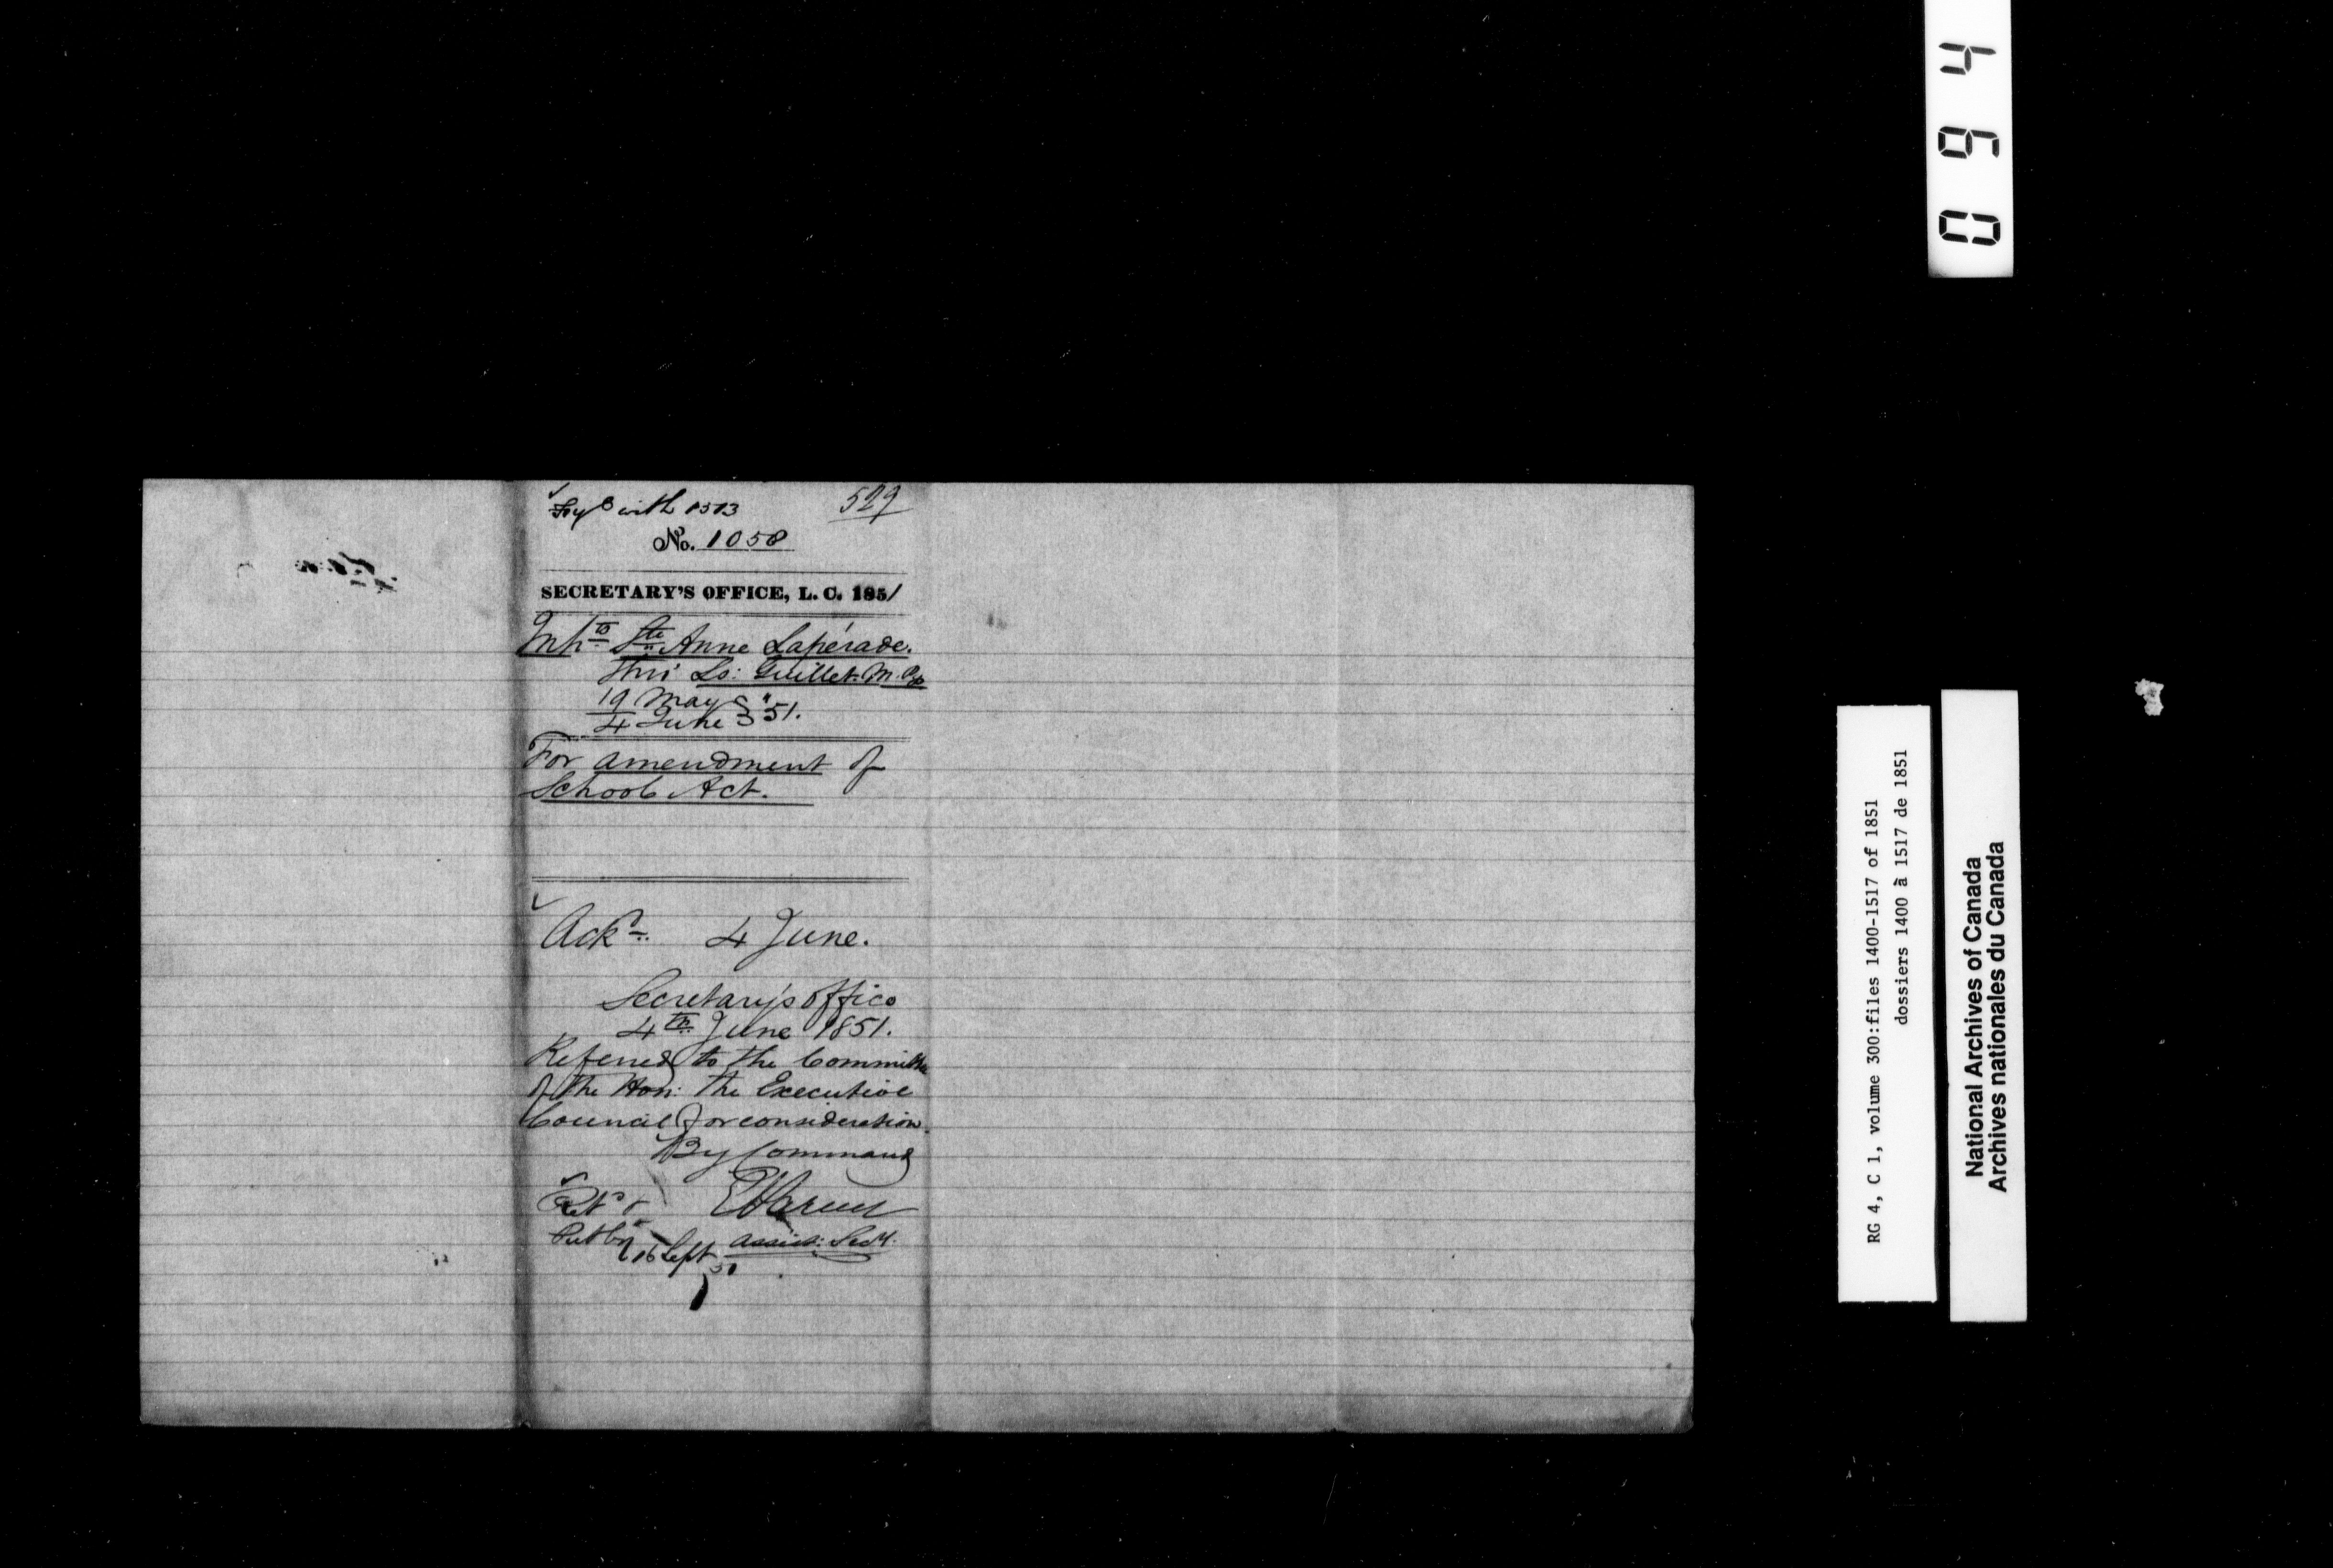 with 1513
529
No. 1058
SECRETARY'S OFFICE, L. C. 1851
Inhts Ste Anne Lapérade.
thro' Ls: Guillet. M.P.P.
19 May
4 June } "51.
For amendment of
School Act.
Ackd 4 June.
Secretary's Office
4th June 1851.
Referred to the Committee
of the Hon: the Executive
Council for consideration.
By Command
E Parent
Assist: Secy.
Ret'd &
Put by
16 Sept
51
0 9 4
RG 4, C 1, volume 300:files 1400-1517 of 1851
dossiers 1400 à 1517 de 1851
National Archives of Canada
Archives nationales du Canada